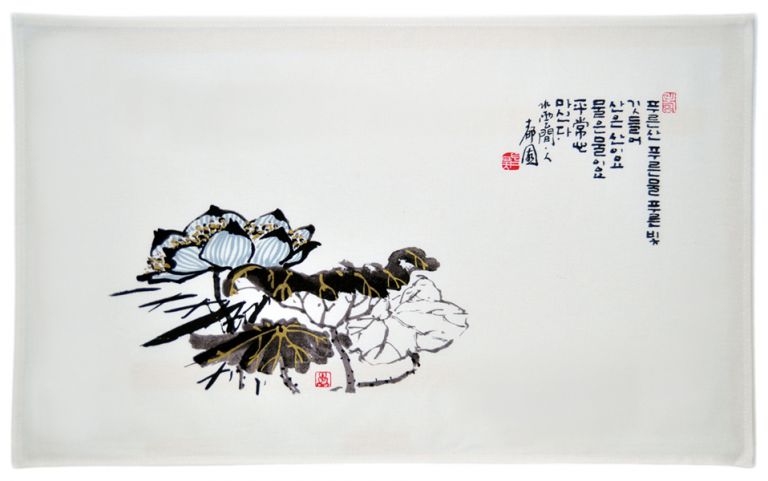 푸른산 푸른물 푸른빛
깃들여
산은 산이요
물은 물이요
平常心
마신다.
水雲間.人